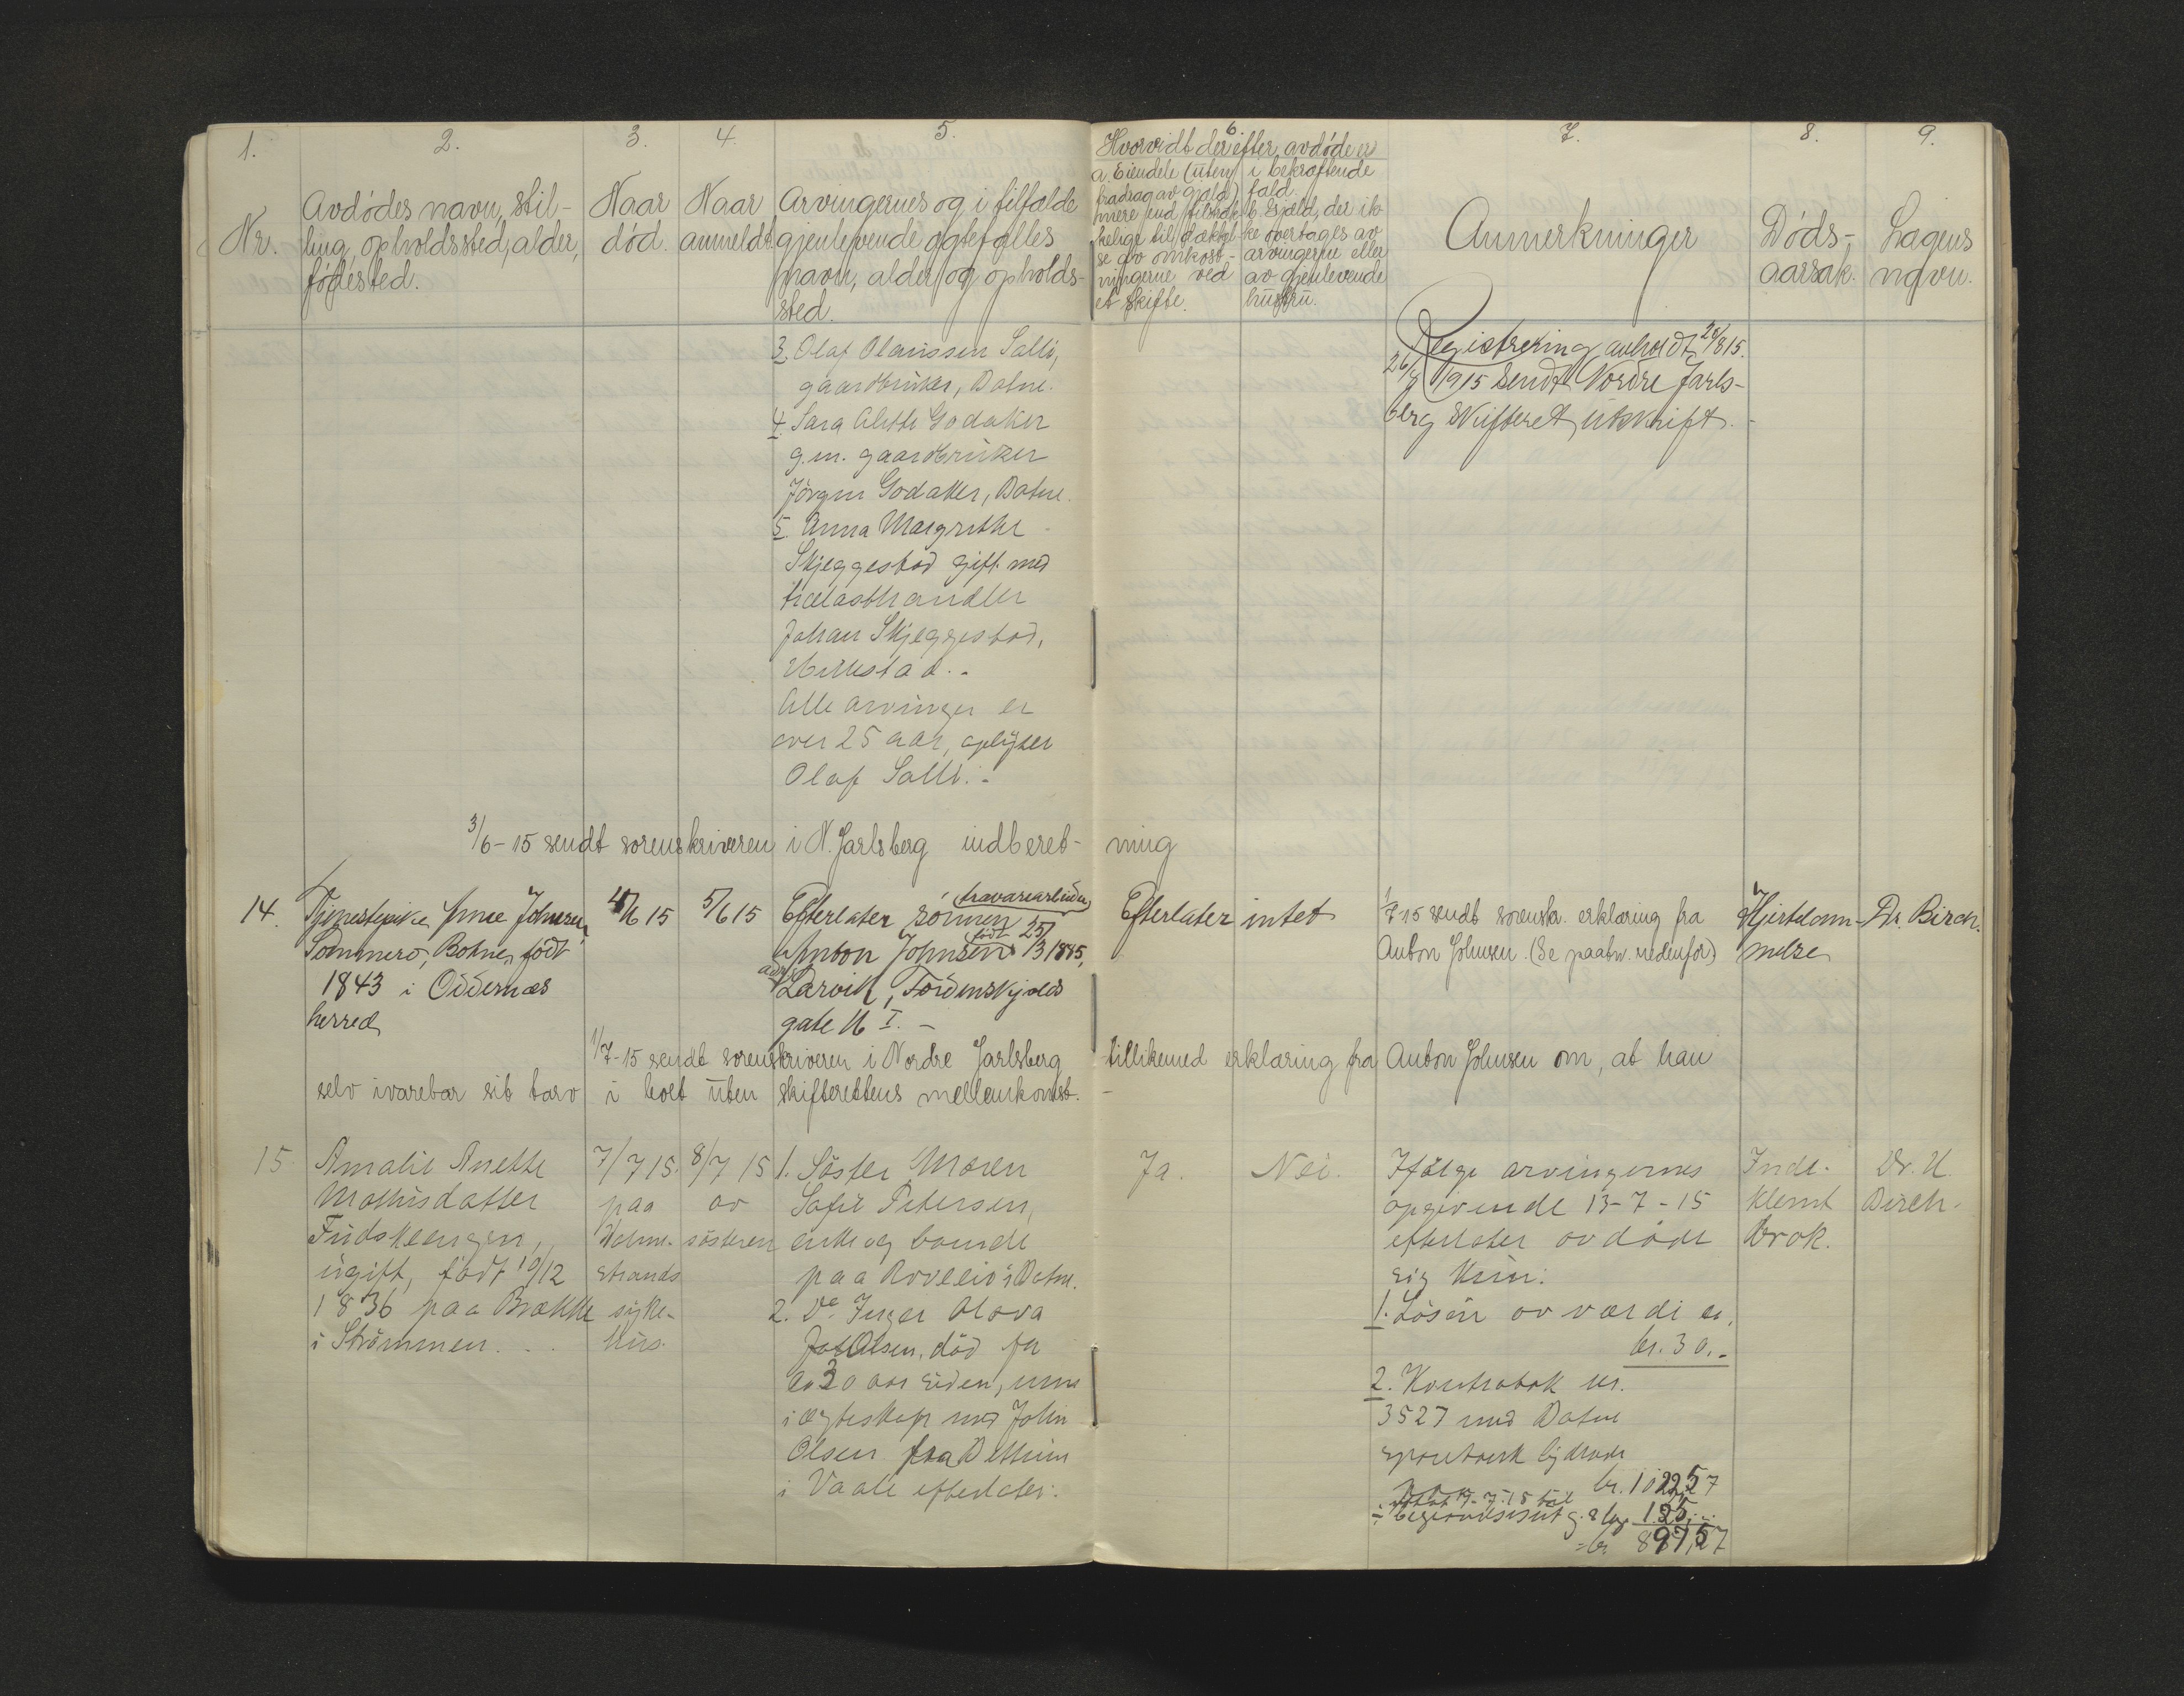 1.
2.
3.
4.
5.
6.
7.
8.
9.
Nr.
Avdødes navn, stil-
ling, opholdssted, alder,
fødested.
Naar
død.
Naar
anmeldt.
Arvingernes og i tilfælde
gjenlevende ægtefælles
navn, alder og opholds-
sted.
Hvorvidt der efter avdøde er
a. Eiendele (uten
fradrag av gjæld)
mere end tilstræk-
kelige til dækkel-
se av omkost-
ningerne ved
et skifte.
i bekræftende
fald.
b. Gjæld, der ik-
ke overtages av
arvingerne eller
av gjenlevende
hustru.
Anmerkninger
Døds-
aarsak.
Lægens
navn.
3. Olaf Olaussen Solli,
gaardbruker, Botne.
4. Sara Alette Godaker
g.m. gaardbruker
Jörgen Godaker, Botne.
5. Anna Margrethe
Skjeggestad gift med
trælasthandler
Johan Skjeggestad,
Alle arvinger er
over 25 aar, oplyser
Olaf Solli.-
Registrering avholdt 20/8 15.
26/8 1915 sendt Nordre Jarls-
berg skifteret utskrift.-
3/6-15 sendt sorenskriveren i N. Jarlsberg indberet- ning
14.
Tjenestepike Johnsen,
Sommerö, Botne, født
1843 i Oddernæs
herred
4/6 15
5/6 15
Efterlater sönnen
Anton Johnsen født 25/3 1885,
adr. Larvik, Tordenskjolds
gate 16 I.-
Efterlater intet
1/7 15 sendt sorenskr. erklæring fra
Anton Johnsen. (Se paatn. nedenfor)
Hjertelam-
melse
Dr. Birch.
1/7-15 sendt sorenskriveren i Nordre Jarlsberg tillikemed erklæring fra Anton Johnsen om, at han
selv ivaretar sit tarv i boet uten skifterettens mellemkomst.-
15.
Amalie Anette
Mathisdatter
ugift, født 10/12
1836 paa Brække
i Strömmen.
7/7 15.
paa
Holme-
strands
syke-
hus.
8/7 15
av
søsteren
1. Søster Maren
Sofie Petersen,
enke og boende
paa i Botne.
2. Do Inger Olava
Olsen, död for
ca 30 aar siden, men
i ægteskap med John
Olsen fra
i Vaale efterlater:
Ja.
Nei.
Ifölge arvingernes
opgivende 13-7-15
efterlater avdøde
sig kun:
1. Løsøre av værdi ca.
kr. 30.-
2. Kontrabok nr.
3527 med Botne
sparebank lydende
kr. 1022,57
÷ begravelsesutg. 125,-
= kr. 897,57
Inde-
klemt
brok.
Dr. U.
Birch.